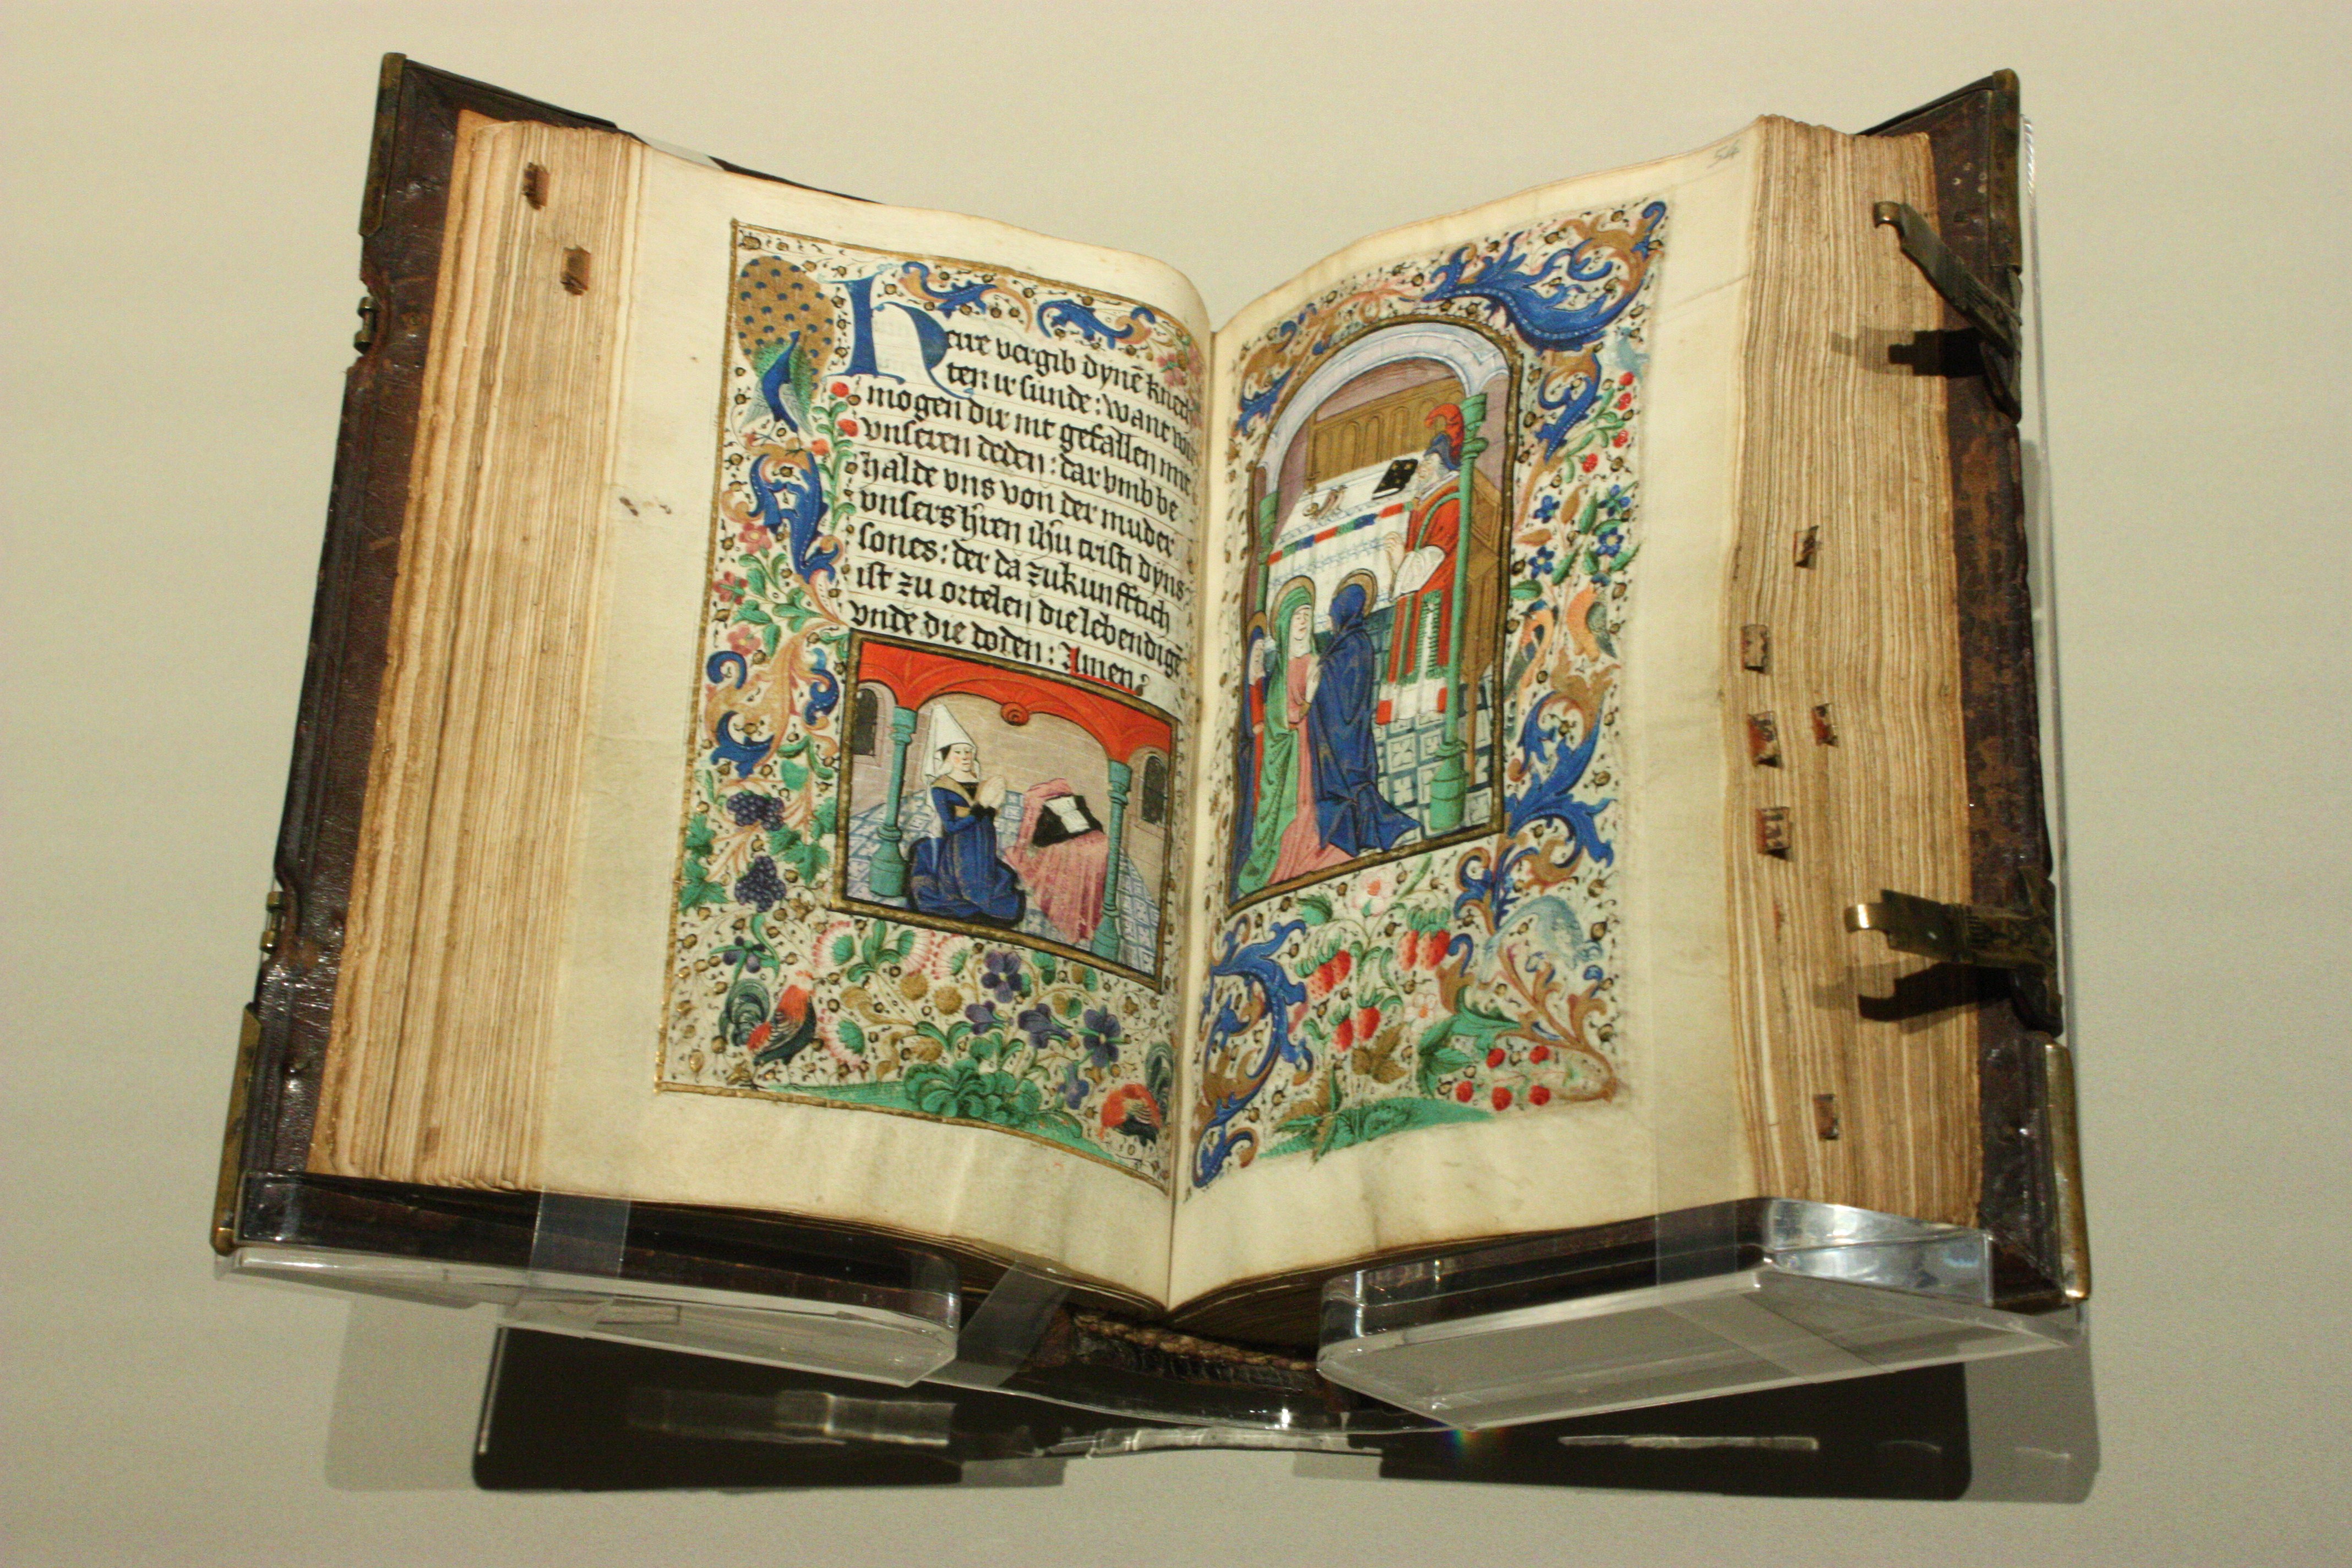 Herre vergib dynē knech
ten ir sunde: want wir
mogen dir nit gefallen mit
vnseren deden: dar vmb be
halde vns von der muder
vnsers hren ihu cristi dyns
sones: der da zukunfftich
ist zu ortelen die lebendigē
vnde die doden: Amen
54